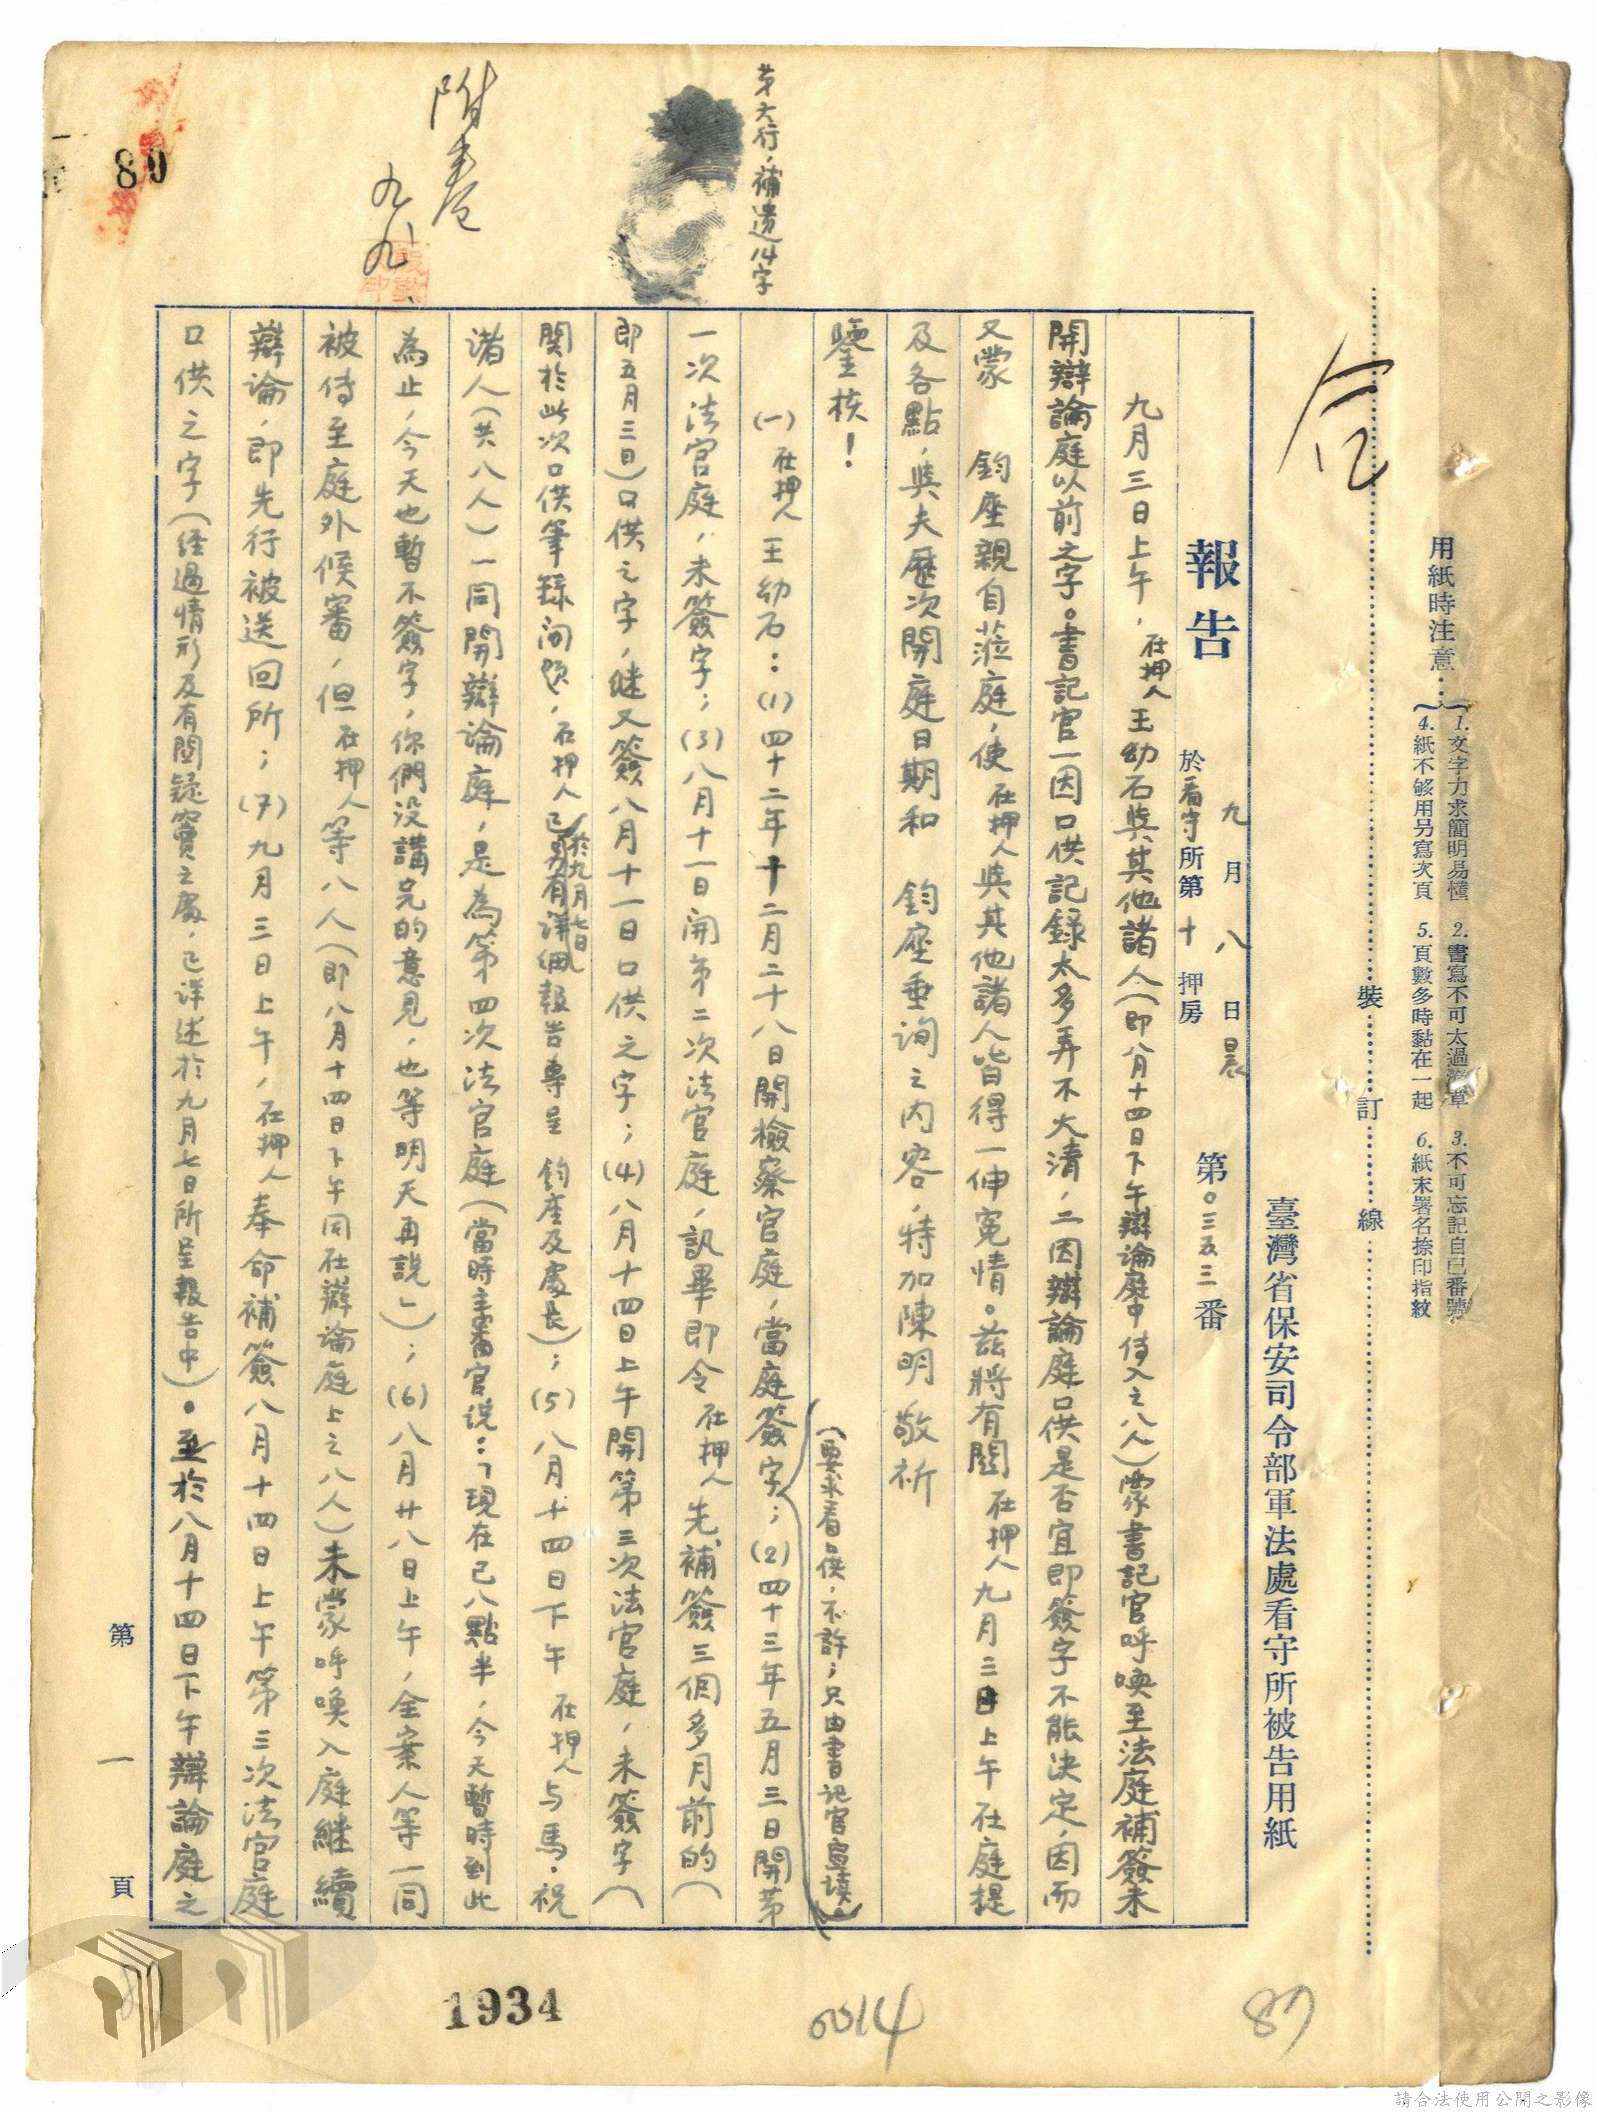 用紙時注意：
1. 文字力求簡明易懂 2. 書寫不可太過潦草 3. 不可忘記自已番號
4. 紙不够用另寫次頁 5. 頁數多時黏在一起 6. 紙末署名捺印指紋
裝 訂 線
臺灣省保安司令部軍法處看守所被告用紙
報告 九月八日晨 於看守所第十押房 第0三五三番
九月三日上午，在押人王幼石與其他諸人（即八月十四日下午辯論庭中傳入之八人）蒙書記官呼喚至法庭補簽未
開辯論庭以前之字。書記官一因口供記錄太多弄不大清，二因辯論庭口供是否宜即簽字不能決定，因而
又蒙 鈞座親自蒞庭，使在押人與其他諸人皆得一伸冤情。茲將有関在押人九月三日上午在庭提
及各點，與夫歷次開庭日期和 鈞座垂詢之內容，特加陳明敬祈
鑒核！
（要求看口供，不許；只由書記官宣讀。）
（一）在押人王幼石：(1)四十二年十二月二十八日開檢察官庭，當庭簽字；(2)四十三年五月三日開第
一次法官庭，未簽字；(3)八月十一日開第二次法官庭，訊畢即令在押人先補簽三個多月前的（
即五月三日）口供之字，继又簽八月十一日口供之字；(4)八月十四日上午開第三次法官庭，未簽字（
関於此次口供筆錄问题，在押人已於九月七日另有詳細報告專呈 鈞座及處長）；(5)八月十四日下午在押人与馬．祝
諸人（共八人）一同開辯論庭，是為第四次法官庭（當時主審官说：「現在已八點半，今天暫時到此
為止，今天也暫不簽字，你們没講完的意見，也等明天再說」）；(6)八月廿八日上午，全案人等一同
被傳至庭外候審，但在押人等八人（即八月十四日下午同在辯論庭上之八人）未蒙呼喚入庭継續
辯論，即先行被送回所；(7)九月三日上午，在押人奉命補簽八月十四日上午第三次法官庭
口供之字（经過情形及有関疑竇之處，已详述於九月七日所呈報告中）。至於八月十四日下午辯論庭之
第六行，補遺14字
附卷
九八
80
第 一 頁
1934
0014
87
請合法使用公開之影像